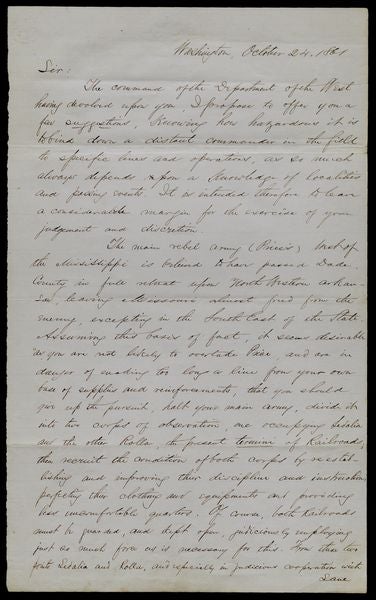 Washington, October 24. 1861
Sir:
The command of the Department of the West
having devolved upon you I propose to offer you a
few suggestions, Knowing how hazardous it is
to bind down a distant commander in the field
to specific lines and operations, as so much
always depends upon a knowledge of localities
and passing events. It is intended therefore to leave
a considerable margin for the exercise of your
judgment and discretion.
The main rebel army (Prices) West of
the Mississippi is believed to have passed Dade
County in full retreat upon North Western Arkan-
sas, leaving Missouri almost freed from the
enemy, excepting in the South East of the State.
Assuming this basis of fact, it seems desirable
as you are not likely to overtake Price, and are in
danger of making too long a line from your own
base of supplies and reinforcements, that you should
give up the pursuit, halt your main army, divide it
into two corps of observation, one occupying Sedalia
and the other Rolla, the present termini of Railroads,
then recruit the condition of both corps by re estab-
lishing and improving their discipline and instruction,
perfecting their clothing and equipments and providing
less uncomfortable quarters. Of course both Railroads
must be guarded, and kept open, judiciously employing
just as much force as is necessary for this. From these two
points Sedalia and Rolla, and especially in judicious cooperation with
Lane